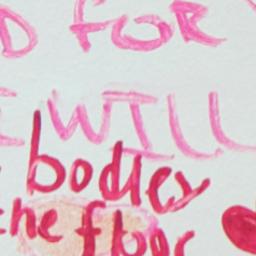 D FOR
I WILL
bodies
the floor